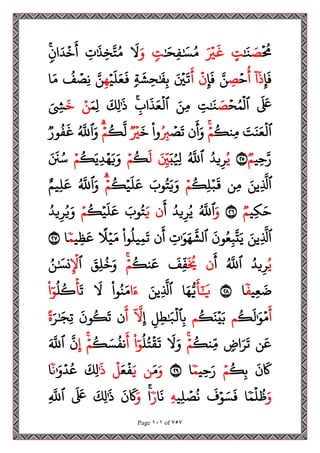 مُحۡصَنَٰتٍ غَيۡرَ مُسَٰفِحَٰتٖ وَلَا مُتَّخِذَٰتِ أَخۡدَانٖۚ
فَإِذَآ أُحۡصِنَّ فَإِنۡ أَتَيۡنَ بِفَٰحِشَةٖ فَعَلَيۡهِنَّ نِصۡفُ مَا
عَلَى ٱلۡمُحۡصَنَٰتِ مِنَ ٱلۡعَذَابِۚ ذَٰلِكَ لِمَنۡ خَشِيَ
ٱلۡعَنَتَ مِنكُمۡۚ وَأَن تَصۡبِرُواْ خَيۡرٞ لَّكُمۡۗ وَٱللَّهُ غَفُورٞ
رَّحِيمٞ ٢٥ يُرِيدُ ٱللَّهُ لِيُبَيِّنَ لَكُمۡ وَيَهۡدِيَكُمۡ سُنَنَ
ٱلَّذِينَ مِن قَبۡلِكُمۡ وَيَتُوبَ عَلَيۡكُمۡۗ وَٱللَّهُ عَلِيمٌ
حَكِيمٞ ٢٦ وَٱللَّهُ يُرِيدُ أَن يَتُوبَ عَلَيۡكُمۡ وَيُرِيدُ
ٱلَّذِينَ يَتَّبِعُونَ ٱلشَّهَوَٰتِ أَن تَمِيلُواْ مَيۡلًا عَظِيمٗا ٢٧
يُرِيدُ ٱللَّهُ أَن يُخَفِّفَ عَنكُمۡۚ وَخُلِقَ ٱلۡإِنسَٰنُ
ضَعِيفٗا ٢٨ يَٰٓأَيُّهَا ٱلَّذِينَ ءَامَنُواْ لَا تَأۡكُلُوٓاْ
أَمۡوَٰلَكُم بَيۡنَكُم بِٱلۡبَٰطِلِ إِلَّآ أَن تَكُونَ تِجَٰرَةً
عَن تَرَاضٖ مِّنكُمۡۚ وَلَا تَقۡتُلُوٓاْ أَنفُسَكُمۡۚ إِنَّ ٱللَّهَ
كَانَ بِكُمۡ رَحِيمٗا ٢٩ وَمَن يَفۡعَلۡ ذَٰلِكَ عُدۡوَٰنٗا
وَظُلۡمٗا فَسَوۡفَ نُصۡلِيهِ نَارٗاۚ وَكَانَ ذَٰلِكَ عَلَى ٱللَّهِ
Page ١٠١ of ٢٥٧